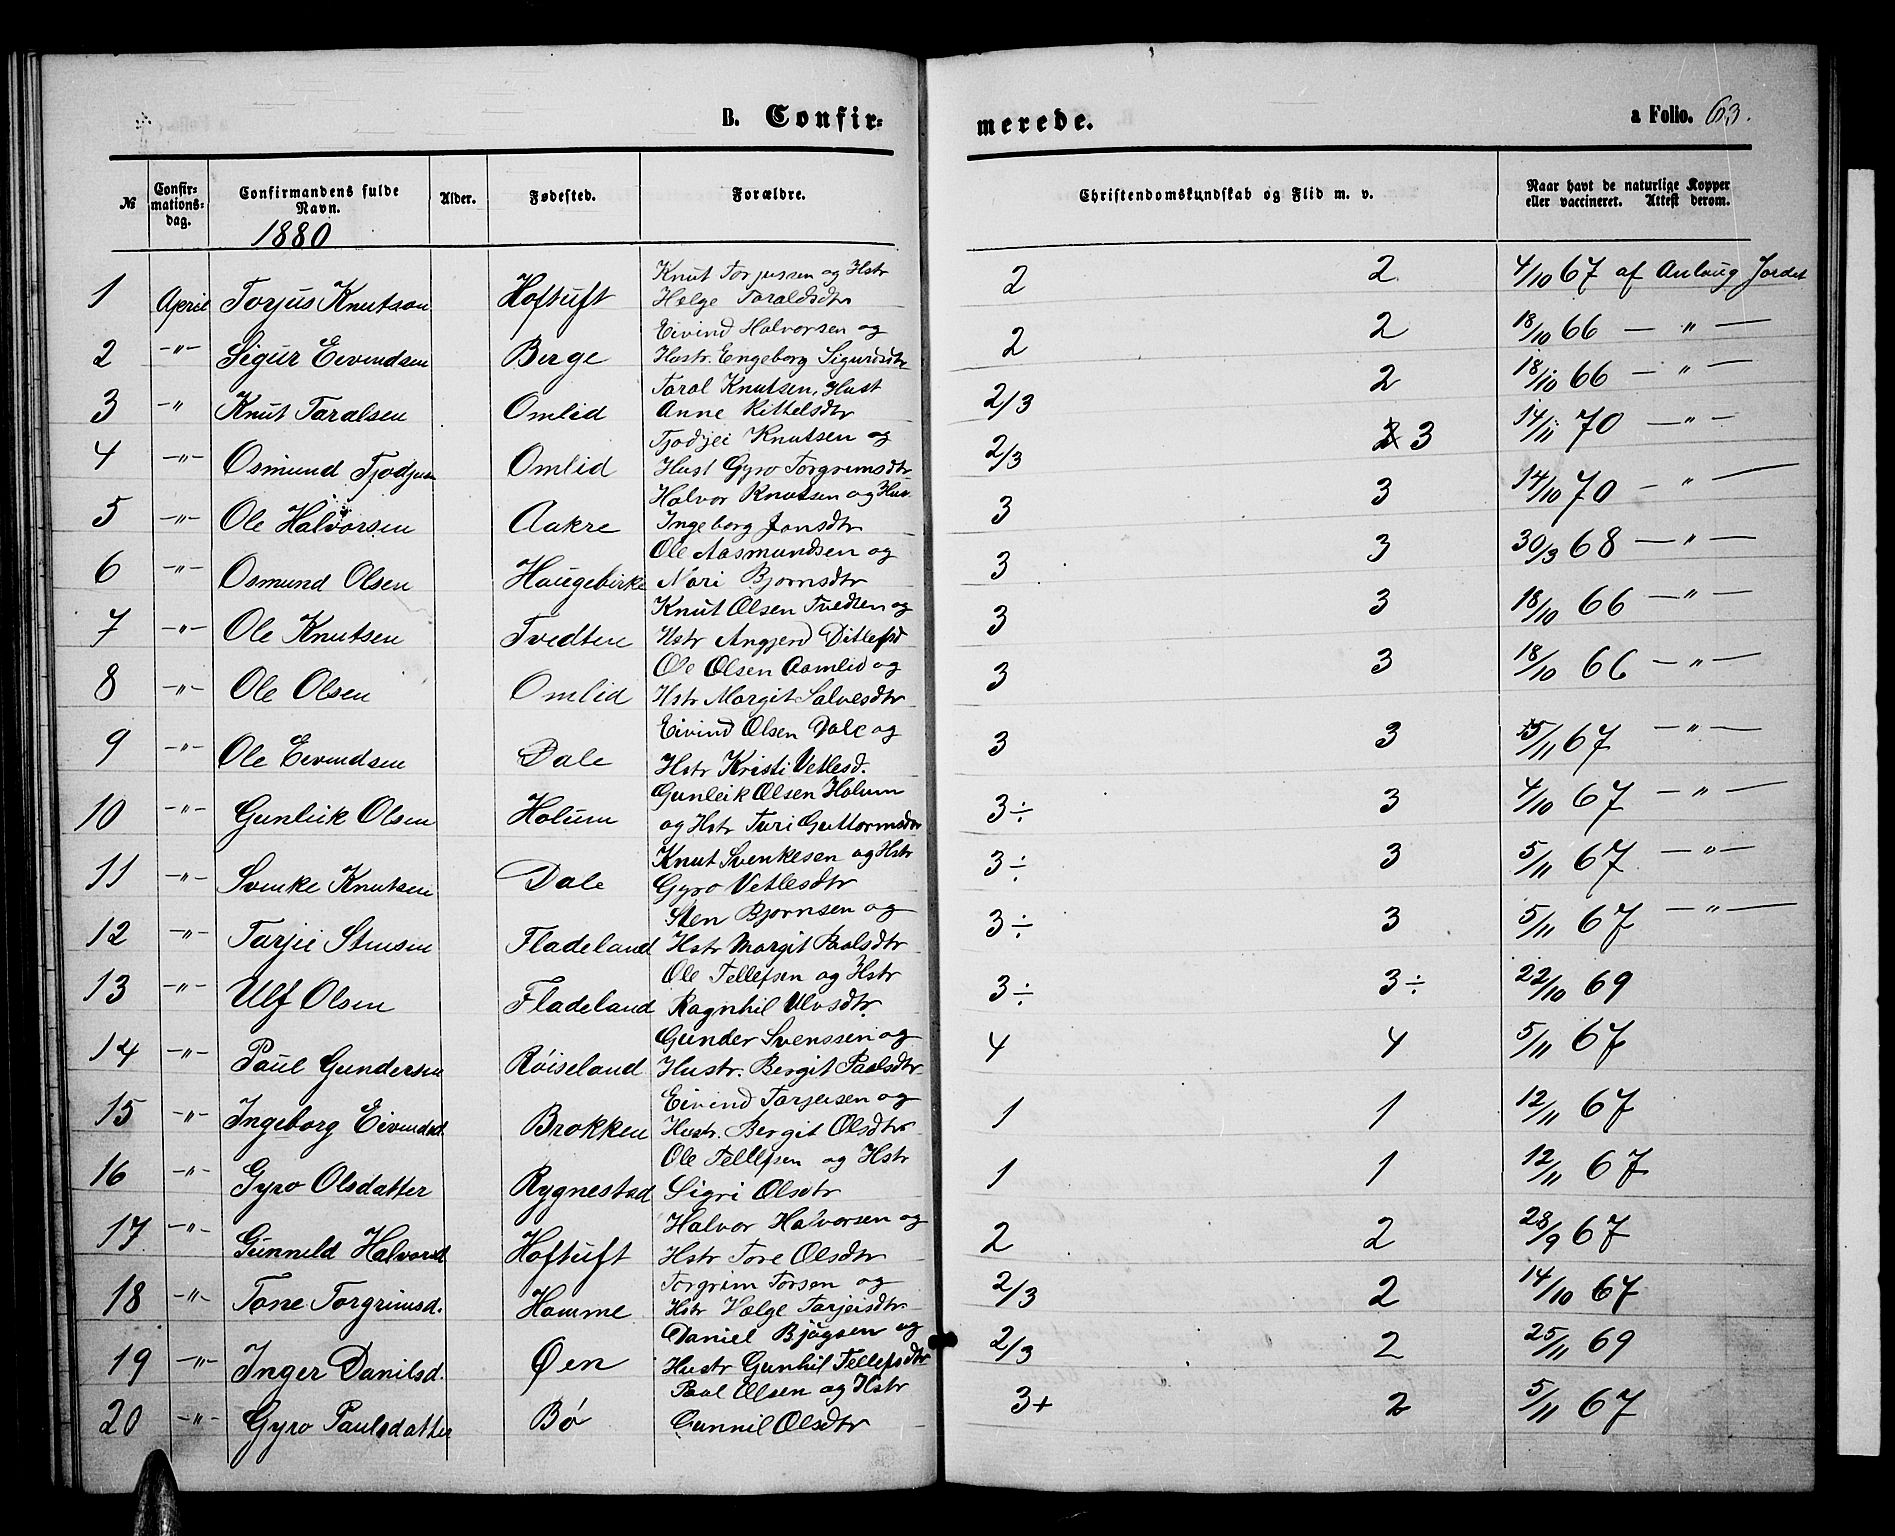 B. Confir-
merede.
a Folio. 63.
№
Confir-
mations-
dag.
Confirmandens fulde
Navn.
Alder.
Fødested.
Forældre.
Christendomskundskab og Flid m. v.
Naar havt de naturlige Kopper
eller vaccineret. Attest derom.
1880
Knut Torjussen og Hstr
1 April Torjus Knutson Hoftuft Helge Taraldsdtr 2 2 4/10 67 af Anlaug Jordet
Eivind Halvorsen og
2 -"- Sigur Eevindsen Berge Hustr. Engeborg Sigurdsdtr 2 2 18/10 66 — " —
Taral Knutsen, Hust
3 -" Knut Taralsen Omlid Anne Kittelsdtr 2/3 2 18/10 66 — " —
Tjodjei Knutsen og
4 -"- Osmund Tjodjus Omlid Hust Gyro Torgrimsdtr 2/3 2 3 14/11 70 — " —
Halvor Knutsen og Hus
5 -"- Ole Halvorsen Aakre Ingeborg Jonsdtr 3 3 14/10 70 — " —
Ole Aasmundsen og
6 -"- Osmund Olsen Haugebirke Nari Bjornsdtr 3 3 30/3 68 — " —
Knut Olsen Tvedten og
7 -"- Ole Knutsen Tvedten Hstr Angjerd Ditlefsd 3 3 18/10 66 — " —
Ole Olsen Aamlid og
8 -"- Ole Olsen Omlid Hstr Margit Salvesdtr 3 3 18/10 66 — " —
Eivind Olsen Dale og
9 -"- Ole Eevindsen Dale Hstr Kristi Vetlesd. 3 3 5/11 67 — " —
Gunleik Olsen Holum
10 -"- Gunleik Olsen Holum og Hstr Turi Guttormsdtr 3÷ 3 4/10 67 — " —
Knut Svenkesen og Hstr
11 -"- Svenke Knutsen Dale Gyro Vetlesdtr 3÷ 3 5/11 67 — " —
Sten Bjornsen og
12 -"- Tarjei Stensen Fladeland Hstr Margit Paalsdtr 3÷ 3 5/11 67 — " —
Ole Tellefsen og Hstr
13 -"- Ulf Olsen Fladeland Ragnhil Ulvsdtr. 3÷ 3÷ 22/10 69
Gunder Svenssen og
14 -"- Paul Gundersen Røiseland Hustr. Bergit Paalsdtr 4 4 5/11 67
Eivind Tarjeisen og
15 -"- Ingeborg Eivindsd. Brokken Hustr. Bergit Olsdtr 1 1 12/11 67
Ole Tellefsen og Hstr
16 -"- Gyro Olsdatter Rygnestad Sigri Olsdtr 1 1 12/11 67
Halvor Halvorsen og
17 -"- Gunneld Halvorsd Hoftuft Hstr Tore Olsdtr 2 2 28/9 67
Torgrim Torsen og
18 -"- Tone Torgrimsd. Homme Hstr Hælge Tarjeisdtr 2/3 2 14/10 67
Daniel Bjugsen og
19 -"- Inger Danilsd. Øen Hustr Gunhil Tellefsdtr 2/3 2 25/11 69
Paal Olsen og Hstr
20 -"- Gyro Paulsdatter Bø Gunnil Olsdtr 3+ 2 5/11 67